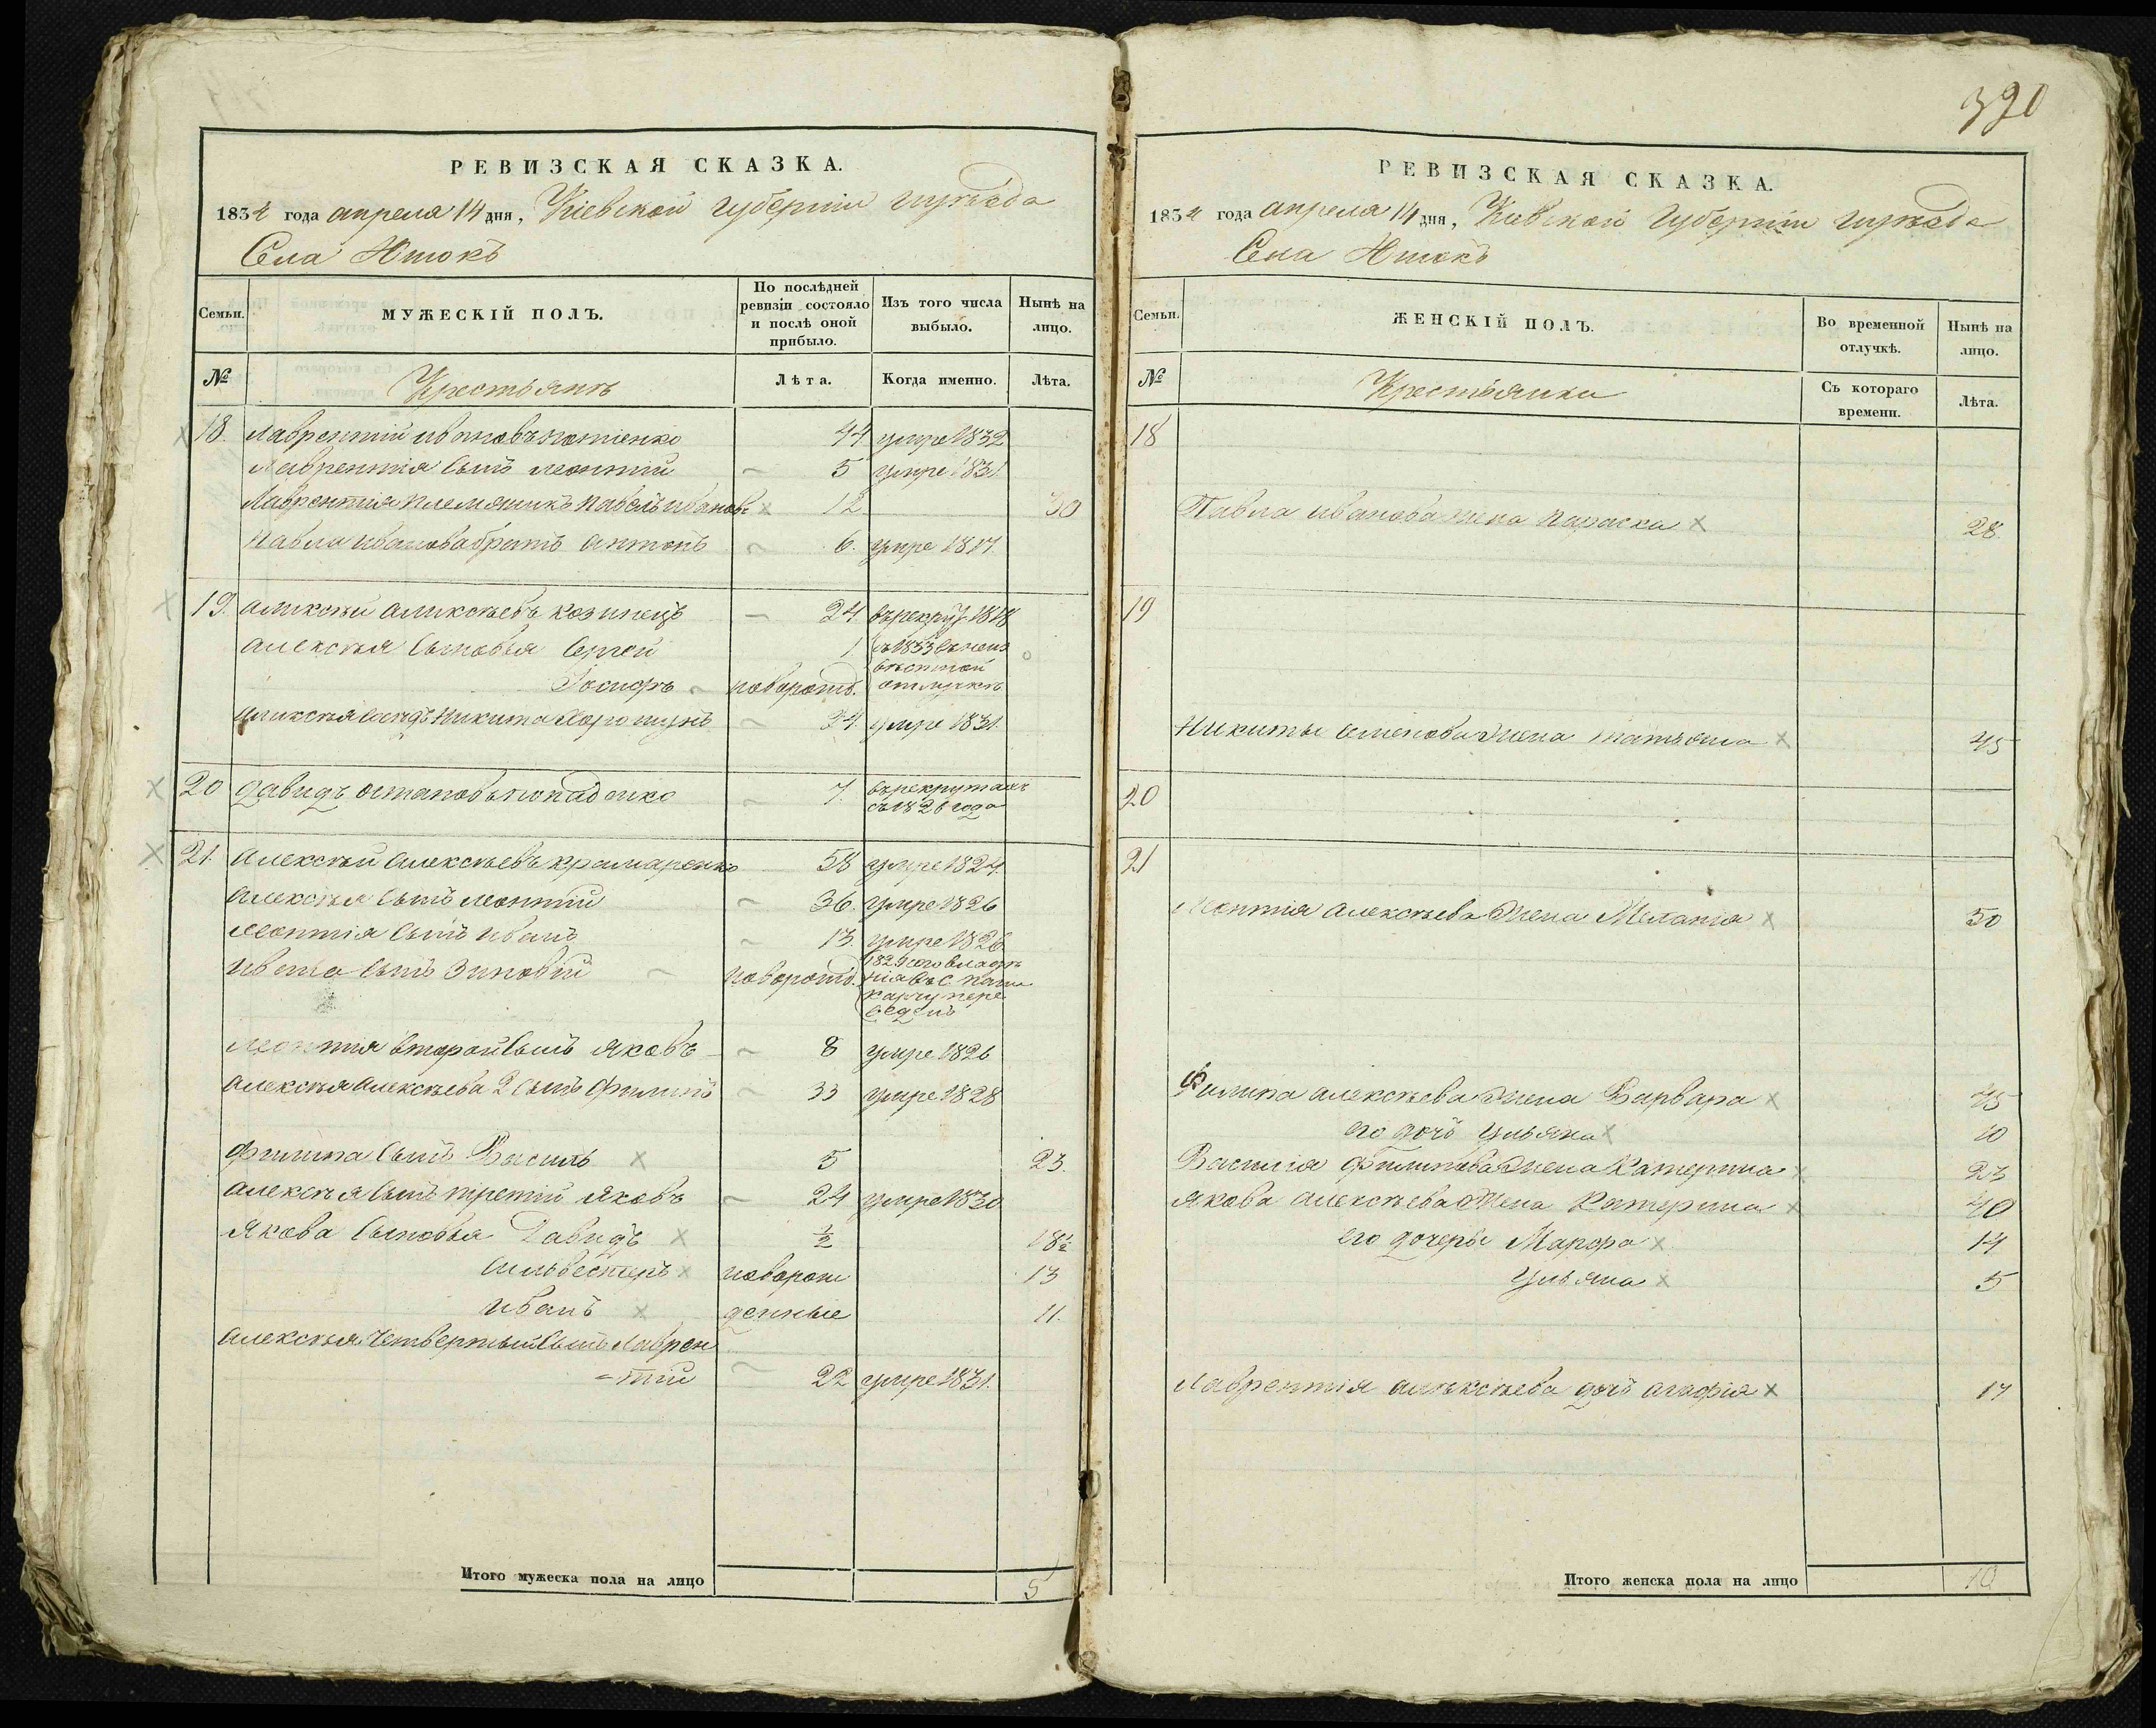 390
РЕВИЗСКАЯ СКАЗКА.
1834 года апреля 14 дня, Кіевской губерніи и уѣзда
Села Нѣ
Семьи.
МУЖЕСКІЙ ПОЛЪ.
По послѣдней ревизіи состояло и послѣ оной прибыло.
Изъ того числа выбыло.
Нынѣ на лицо.
№
Крестьянъ
Лѣта.
Когда именно.
Лѣта.
18. Лаврентій Ивановъ 44 умре 1832
Лаврентія сынъ Леонтій 5 умре 1831
Лаврентія племяникъ Павелъ Ивановъ 12 30
Павла Иванова братъ Антонъ 6. умре 1817.
19. Аликсѣй Аликсѣевъ Козинецъ 24 въ рекрут. 1818
Алексѣя сыновья Сергей 1 съ 1833 въ неиз
вѣстной
Іосифъ новорожд. отлучкѣ
Аликсѣя сосѣдъ Никита 24. умре 1831.
20 Давидъ Остаповъ 7. въ рекрутахъ
съ 1826 года
21. Алексѣй Алексѣевъ Крамаренко 58 умре 1824.
Алексѣя сынъ Леонтій 36. умре 1826
Леонтія сынъ Иванъ 13. умре 1826
Ивана сынъ Зиновій новорожд. 1829 сого владѣ
нія въ с.
пере
веденъ
Леонтія второй сынъ Яковъ 8 умре 1826
Алексѣя Алексѣева 2 сынъ Филипъ 33 умре 1828
Филипа сынъ Василь 5 23.
Алексѣя сынъ третій Яковъ 24 умре 1830
Якова сыновья Давидъ ½ 18½
Сильвестеръ новорож 13
Иванъ денные 11.
Алексѣя четвертый сынъ Лаврен
=тій 22 умре 1831.
Итого мужеска пола на лицо 5
РЕВИЗСКАЯ СКАЗКА.
1834 года апреля 14 дня, Кіевской губерніи и уѣзда
Села
Семьи.
ЖЕНСКІЙ ПОЛЪ.
Во временной отлучкѣ.
Нынѣ на лицо.
№
Крестьянки
Съ котораго времени.
Лѣта.
18
Павла Иванова жена Параска 28.
19
Никиты Семенова жена Татьяна 45
20
21
Леонтія Алексѣева жена Меланія 50
Филипа Алексѣева жена Варвара 45
его дочь Ульяна 10
Василія Филипова жена Катерина 23
Якова Алексѣева жена Катерина 40
его дочеры Марфа 14
Ульяна 5
Лаврентія Алексѣева дочь Агафія 17
Итого женска пола на лицо 10